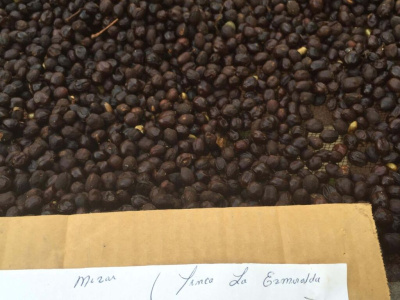 Mizar ( Finca La Esmeralda